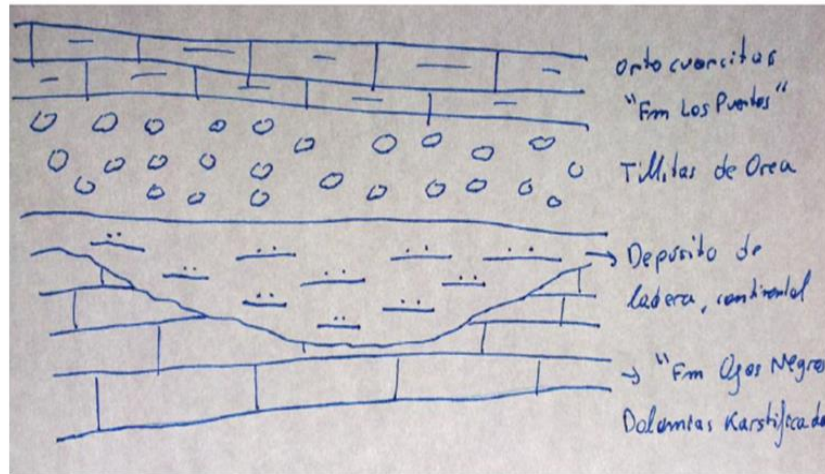 Ortocuarcitas
"Fm Los Puertos"
Tillitas de Orea
Depósito de
ladera, continental
"Fm Ojos Negro
Dolomias Karstificada